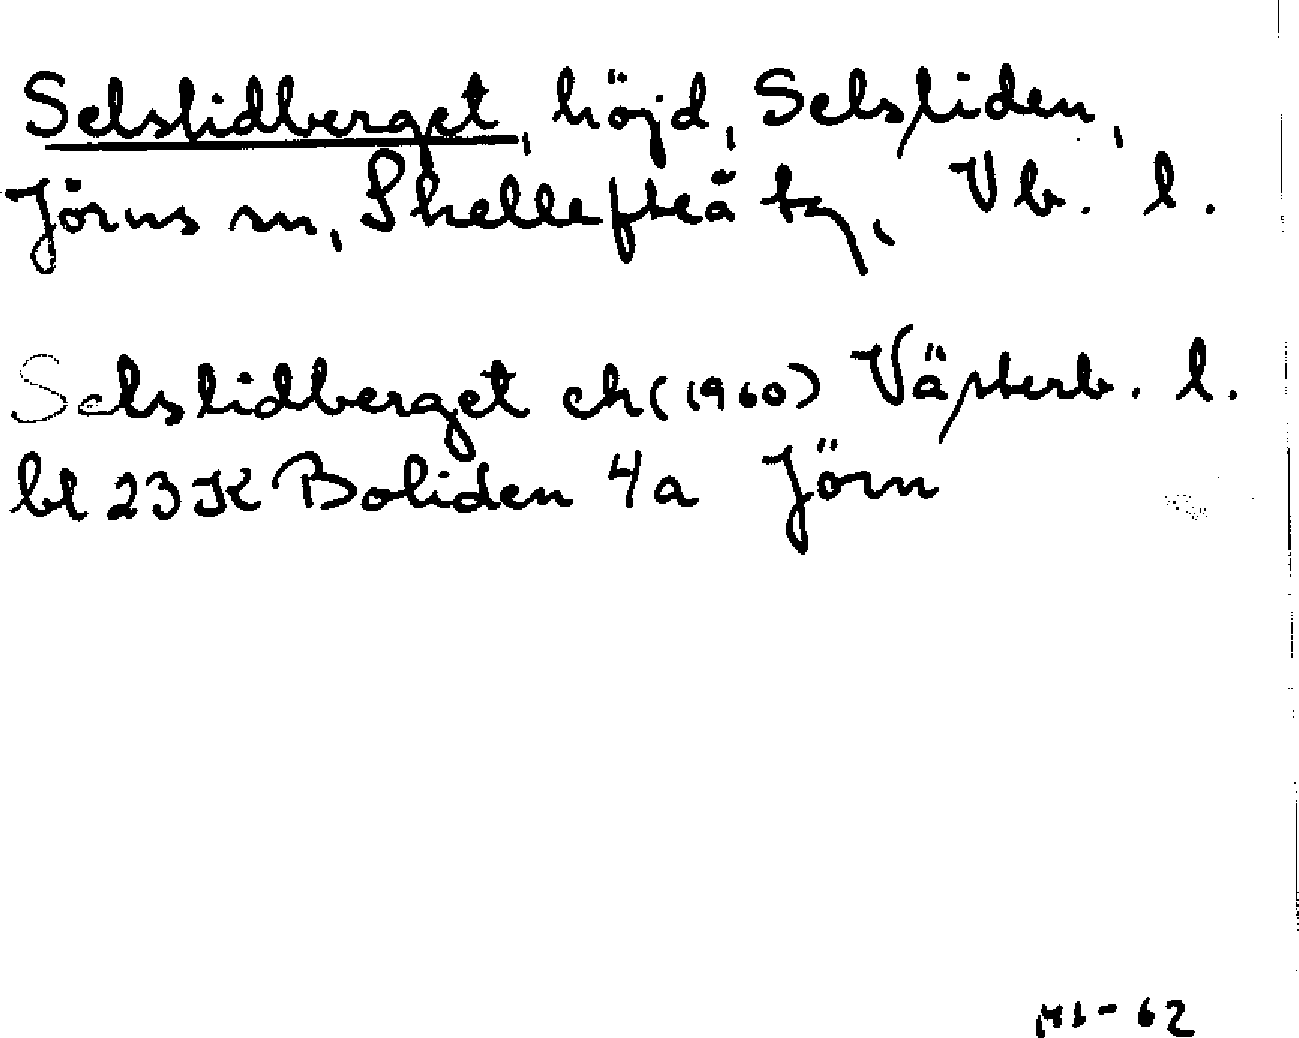 Selslidberget, höjd, Selsliden,
Jörns sn, Skellefteå tg, Vb. l.
Selslidberget ek (1960) Västerb. l.
bl 23 K Boliden 4a Jörn
-62